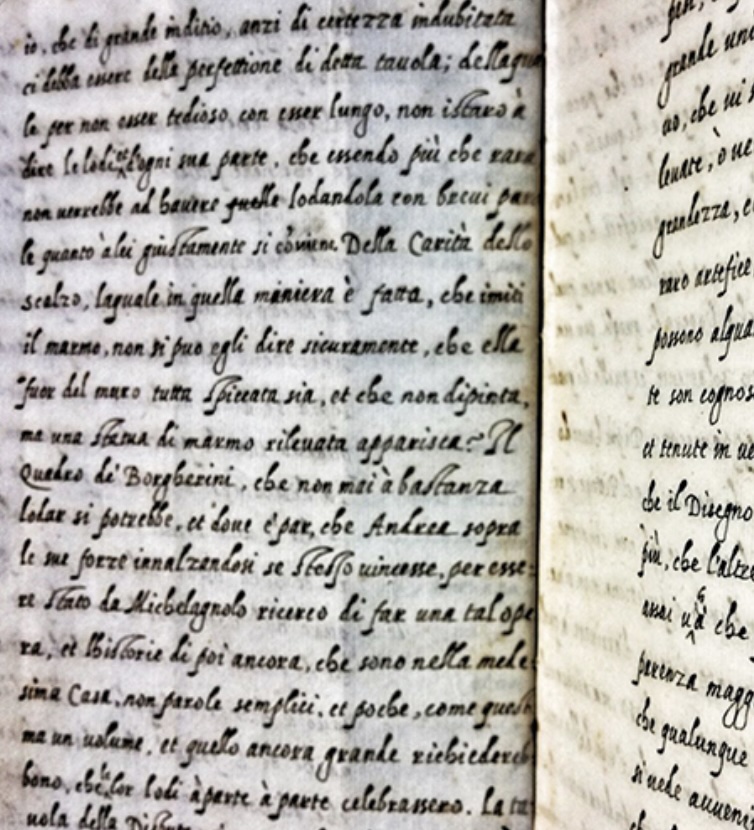 io, che di grande inditio, anzi di certezza indubitata
ci debba essere della perfettione di detta tavola; della qua
le per non esser tedioso con esser lungo, non istarò à
dire le lodi et d'ogni sua parte, che essendo più che rara
non uerrebbe ad hauere quelle lodandola con breui paro
le quanto à lei giustamente si Della Carità dello
scalzo, laquale in quella maniera è fatta, che imiti
il marmo, non si puo egli dire sicuramente, che ella
fuor del muro tutta spiccata sia, et che non dipinta,
ma una statua di marmo rileuata apparisca? Il
Quadro de' Borgherini, che non mai à bastanza
lodar si potrebbe, et doue è par, che Andrea sopra
le sue forze innalzandosi se stesso uincesse, per esse:
re stato da Michelagnolo ricerco di far una tal ope
ra, et lhistorie di poi ancora, che sono nella mede
sima Casa, non parole semplici, et poche, come queste
ma un uolume, et quello ancora grande richiedereb
bono, che le lor lodi à parte à parte celebrassero. La ta
uola della
grande
uo, che
leuare, ò
grandezza,
raro artefice
possono
te son
et tenute in
che il Disegno
più, che
assai che
magg
che qualunque
si uede